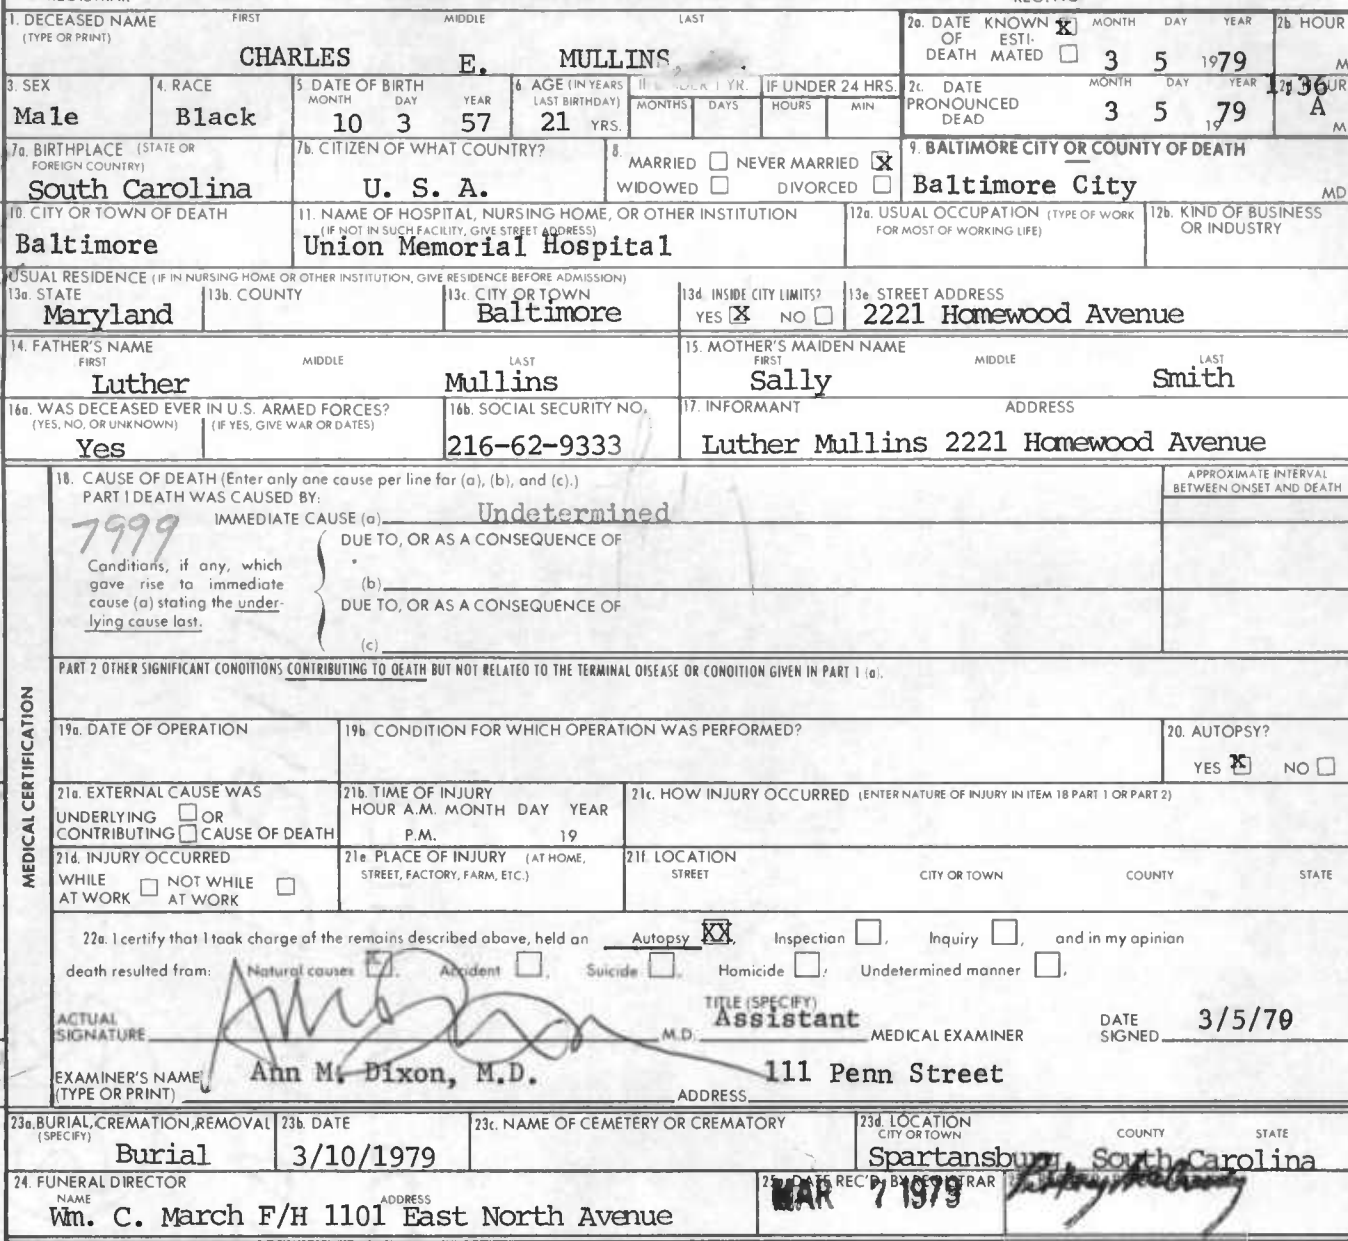 1. DECEASED NAME FIRST MIDDLE LAST
(TYPE OR PRINT)
CHARLES E. MULLINS
2a. DATE OF DEATH KNOWN X ESTIMATED MONTH DAY YEAR
3 5 1979
2b. HOUR
M
3. SEX
Male
4. RACE
Black
5. DATE OF BIRTH
MONTH DAY YEAR
10 3 57
6. AGE (IN YEARS LAST BIRTHDAY)
21 YRS.
IF UNDER 1 YR.
MONTHS DAYS
IF UNDER 24 HRS.
HOURS MIN
2c. DATE PRONOUNCED DEAD MONTH DAY YEAR
3 5 1979
2d. HOUR
1:36
A M
7a. BIRTHPLACE (STATE OR FOREIGN COUNTRY)
South Carolina
7b. CITIZEN OF WHAT COUNTRY?
U. S. A.
8.
MARRIED NEVER MARRIED X
WIDOWED DIVORCED
9. BALTIMORE CITY OR COUNTY OF DEATH
Baltimore City MD
10. CITY OR TOWN OF DEATH
Baltimore
11. NAME OF HOSPITAL, NURSING HOME, OR OTHER INSTITUTION
(IF NOT IN SUCH FACILITY, GIVE STREET ADDRESS)
Union Memorial Hospital
12a. USUAL OCCUPATION (TYPE OF WORK FOR MOST OF WORKING LIFE)
12b. KIND OF BUSINESS OR INDUSTRY
USUAL RESIDENCE (IF IN NURSING HOME OR OTHER INSTITUTION, GIVE RESIDENCE BEFORE ADMISSION)
13a. STATE
Maryland
13b. COUNTY
13c. CITY OR TOWN
Baltimore
13d. INSIDE CITY LIMITS?
YES X NO
13e. STREET ADDRESS
2221 Homewood Avenue
14. FATHER'S NAME
FIRST MIDDLE LAST
Luther Mullins
15. MOTHER'S MAIDEN NAME
FIRST MIDDLE LAST
Sally Smith
16a. WAS DECEASED EVER IN U.S. ARMED FORCES?
(YES, NO, OR UNKNOWN) (IF YES, GIVE WAR OR DATES)
Yes
16b. SOCIAL SECURITY NO.
216-62-9333
17. INFORMANT ADDRESS
Luther Mullins 2221 Homewood Avenue
MEDICAL CERTIFICATION
18. CAUSE OF DEATH (Enter only one cause per line for (a), (b), and (c).)
PART I DEATH WAS CAUSED BY:
APPROXIMATE INTERVAL
BETWEEN ONSET AND DEATH
IMMEDIATE CAUSE (a) Undetermined
7999
DUE TO, OR AS A CONSEQUENCE OF
Conditions, if any, which
gave rise to immediate
cause (a) stating the under-
lying cause last.
(b)
DUE TO, OR AS A CONSEQUENCE OF
(c)
PART 2 OTHER SIGNIFICANT CONDITIONS CONTRIBUTING TO DEATH BUT NOT RELATED TO THE TERMINAL DISEASE OR CONDITION GIVEN IN PART 1 (a).
19a. DATE OF OPERATION
19b. CONDITION FOR WHICH OPERATION WAS PERFORMED?
20. AUTOPSY?
YES X NO
21a. EXTERNAL CAUSE WAS
UNDERLYING OR
CONTRIBUTING CAUSE OF DEATH
21b. TIME OF INJURY
HOUR A.M. MONTH DAY YEAR
P.M. 19
21c. HOW INJURY OCCURRED (ENTER NATURE OF INJURY IN ITEM 18 PART 1 OR PART 2)
21d. INJURY OCCURRED
WHILE AT WORK NOT WHILE AT WORK
21e PLACE OF INJURY (AT HOME, STREET, FACTORY, FARM, ETC.)
21f. LOCATION
STREET CITY OR TOWN COUNTY STATE
22a. I certify that I took charge of the remains described above, held an Autopsy XX, Inspection , Inquiry , and in my opinion
death resulted from: Natural causes X, Accident , Suicide , Homicide , Undetermined manner .
ACTUAL SIGNATURE M.D.
TITLE (SPECIFY)
Assistant MEDICAL EXAMINER
DATE SIGNED 3/5/79
EXAMINER'S NAME
(TYPE OR PRINT) Ann M. Dixon, M.D.
ADDRESS 111 Penn Street
23a. BURIAL, CREMATION, REMOVAL
(SPECIFY)
Burial
23b. DATE
3/10/1979
23c. NAME OF CEMETERY OR CREMATORY
23d. LOCATION
CITY OR TOWN COUNTY STATE
Spartansburg, South Carolina
24. FUNERAL DIRECTOR
NAME ADDRESS
Wm. C. March F/H 1101 East North Avenue
25a. DATE REC'D. BY REGISTRAR
MAR 7 1979